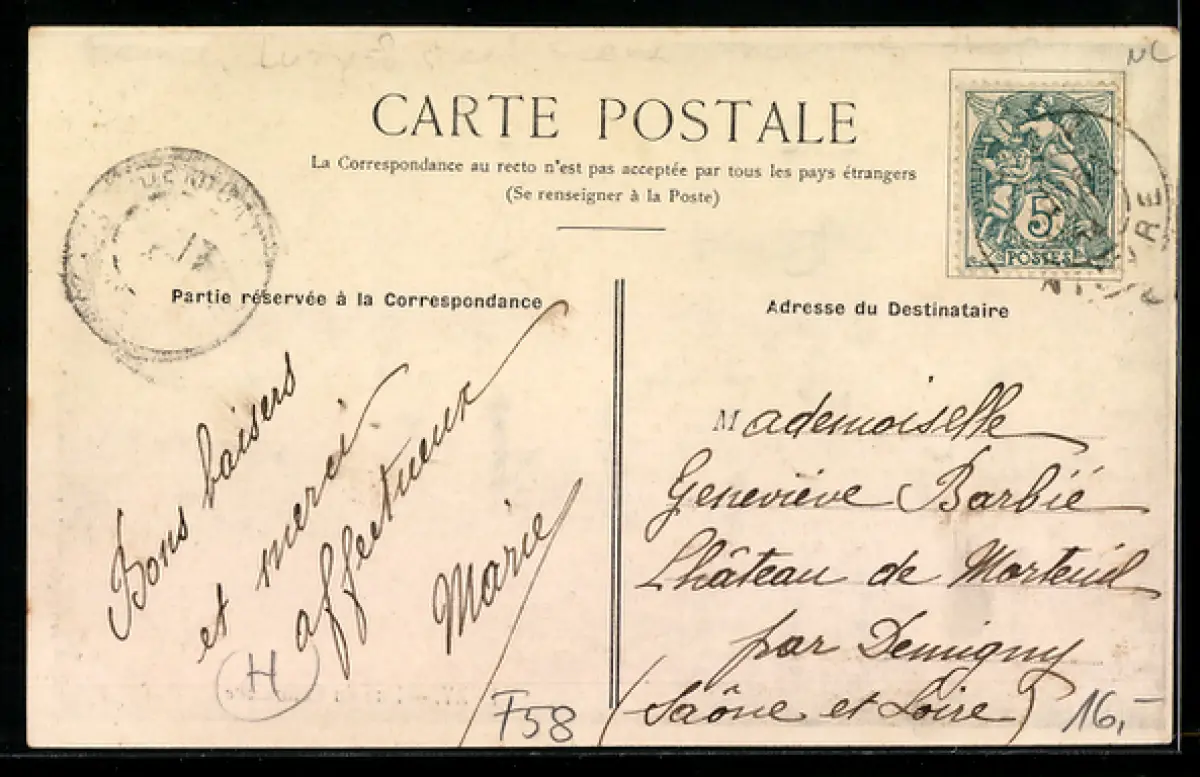 NC
CARTE POSTALE
La Correspondance au recto n'est pas acceptée par tous les pays étrangers
(Se renseigner à la Poste)
5
POSTES
Partie réservée à la Correspondance
Bons baisers
et merci
affectueux
Marie
H
F58
Adresse du Destinataire
Mademoiselle
Geneviève Barbié
Château de Morteuil
par Demigny
(Saône et Loire)
16,-